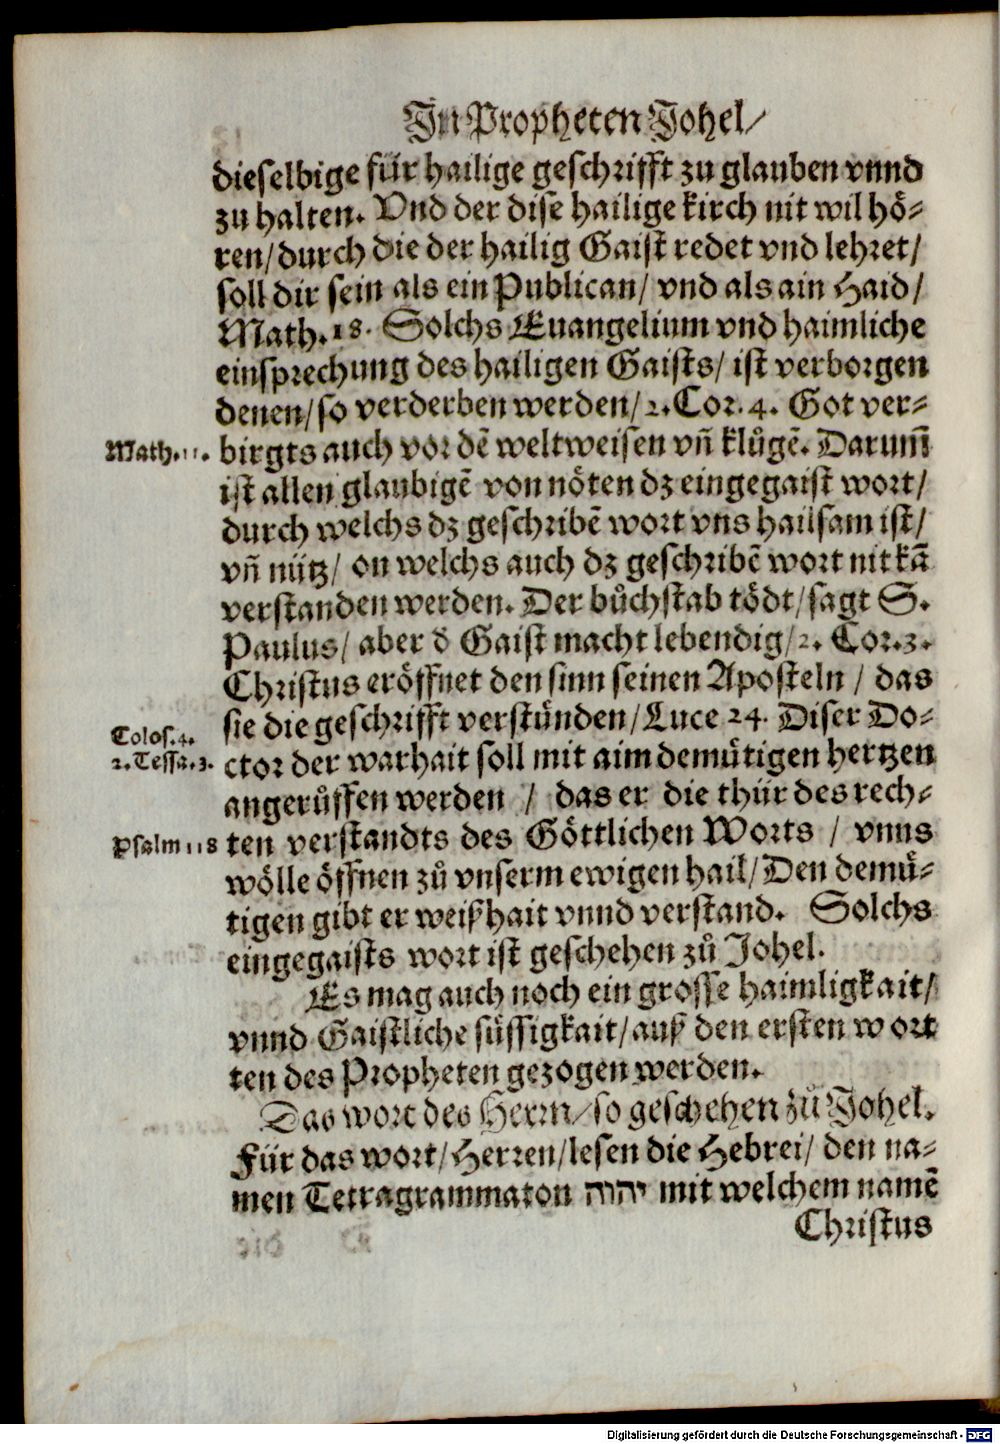 In Propheten Johel/
dieselbige für hailige geschrifft zu glauben vnnd
zu halten. Vnd der dise hailige kirch nit wil hö-
ren/durch die der hailig Gaist redet vnd lehret/
soll dir sein als ein Publican/ vnd als ain Haid/
Math.18. Solchs Euangelium vnd haimliche
einsprechung des hailigen Gaists/ ist verborgen
denen/so verderben werden/2.Cor.4. Got ver-
Math.11. birgts auch vor dē weltweisen vñ klůgē. Darum̃
ist allen glaubigē von nöten dz eingegaist wort/
durch welchs dz geschribē wort vns hailsam ist/
vñ nütz/ on welchs auch dz geschribē wort nit kā
verstanden werden. Der bůchstab tödt/sagt S.
Paulus/ aber d̄ Gaist macht lebendig/2. Cor.3.
Christus eröffnet den sinn seinen Aposteln / das
sie die geschrifft verstünden/Luce 24. Diser Do-
Colos.4.
2.Tessa.3. ctor der warhait soll mit aim demütigen hertzen
angerůffen werden / das er die thür des rech-
Psalm 118 ten verstandts des Göttlichen Worts / vnns
wölle öffnen zů vnserm ewigen hail/Den demü-
tigen gibt er weißhait vnnd verstand. Solchs
eingegaists wort ist geschehen zů Johel.
Es mag auch noch ein grosse haimligkait/
vnnd Gaistliche süssigkait/auß den ersten wort
ten des Propheten gezogen werden.
Das wort des Herrn/so geschehen zů Johel.
Für das wort/Herren/lesen die Hebrei/ den na-
men Tetragrammaton יהוה mit welchem namē
Christus
Digitalisierung gefördert durch die Deutsche Forschungsgemeinschaft - DFG